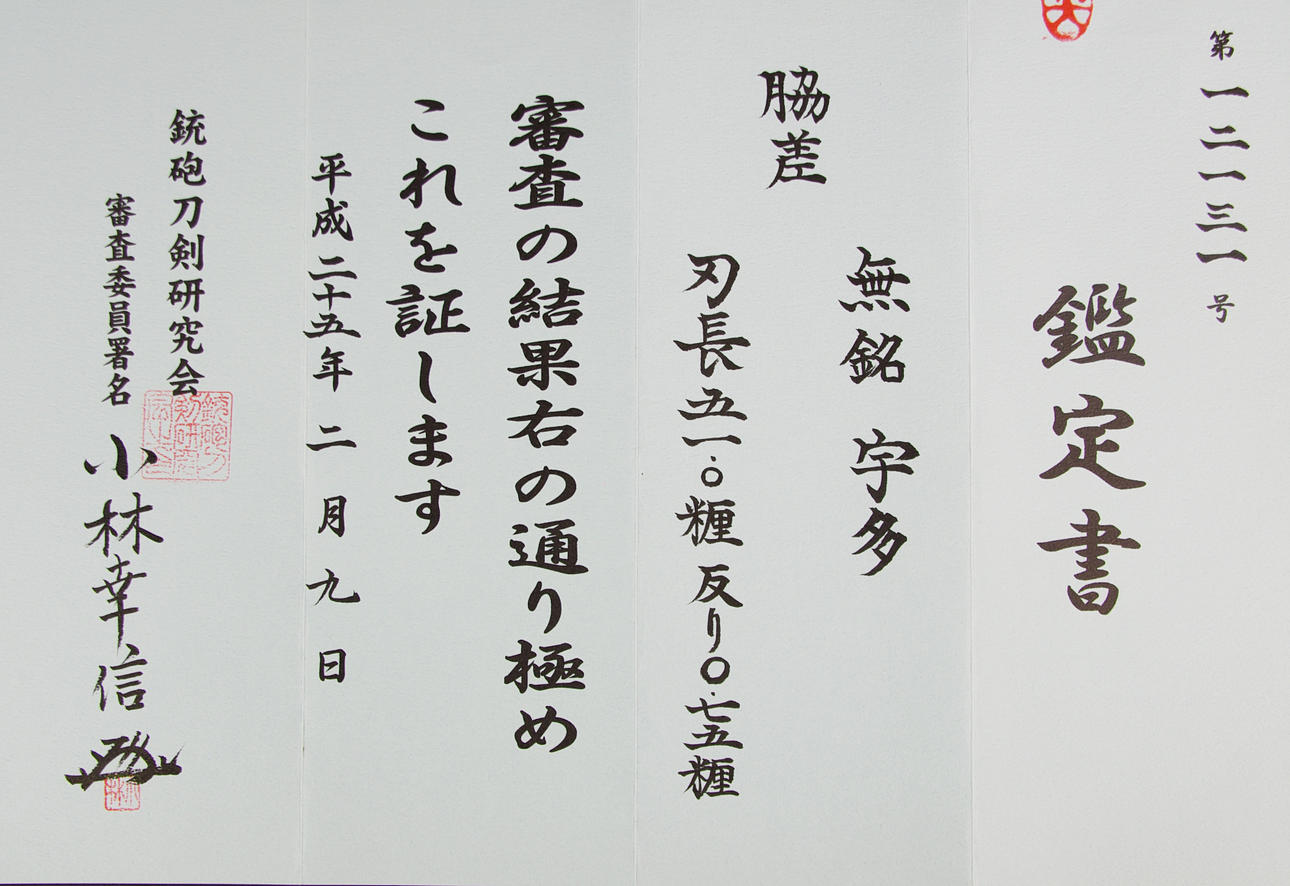 第一二一三一号
鑑定書
無銘 宇多
脇差
刃長五一.〇糎 反り〇.七五糎
審査の結果右の通り極め
これを証します
平成二十五年二月九日
銃砲刀剣研究会
審査委員署名 小林幸信